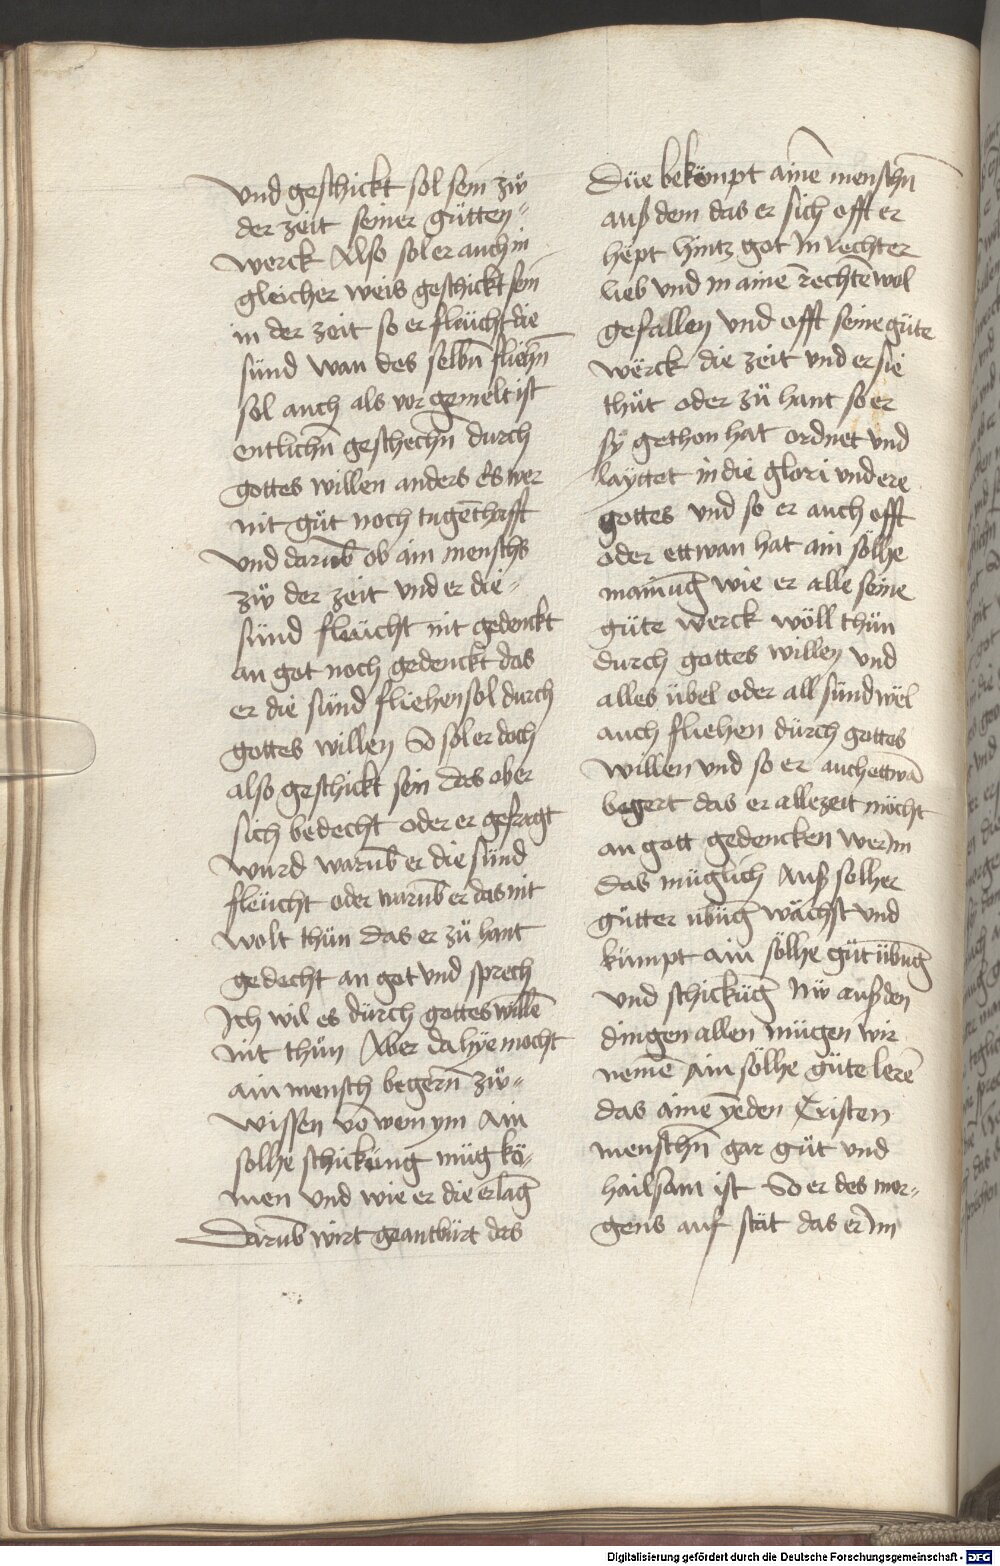 vnd geschickt sol sein zů
der zeit seiner gůtten=
werck Also sol er auch in
gleicher weis geschickt sein
in der zeit so er fleucht die
sünd wan des selbn̄ fliehn̄
sol auch als vor gemelt ist
entlichn̄ geschechn̄ durch
gottes willen anders Es wer
nit gůt noch tugēthafft
vnd darūb ob ain menschs
zů der zeit vnd er die=
sünd fleücht nit gedenckt
an got noch gedenckt das
er die sünd fliehen sol durch
gottes willen So sol er doch
also geschickt sein das ober
sich bedecht oder er gefragt
wurd warūb er die sünd
fleücht oder warūb er das nit
wolt thün das er zů hant
gedecht an got vnd sprech
Ich wil es dürch gottes willē
nit thůn Aber da hÿe mocht
ain mensch begern̄ zů=
wissen vō wem ym Ain
solhe schickung müg kö=
men vnd wie er die erlāg
Darūb wirt geantbürt das
Düe bekömpt ainē menschn̄
auß dem das er sich offt er
hept hintz got in rechter
lieb vnd in aine rechtē wol
gefallen vnd offt seine güte
wërck die zeit vnd er sie
thůt oder zů hant so er
sÿ gethon hat ordnet vnd
laÿttet in die glori vnd ere
gottes vnd so er auch offt
oder ettwan hat ain sölhe
mainūg wie er alle seine
güte werck wöll thün
durch gottes willen vnd
alles übel oder all sünd wël
auch fliehen dürch gottes
willen vnd so er auch ettwā
begert das er alle zeit möcht
an gott gedencken wer im
das müglich Auß solher
gůtter übūg wächst vnd
kümpt ain sölhe gůt übūg
vnd schickūg Nů auß den
dingen allen mügen wir
nemē Ain sölhe güte lerē
das aine ÿeden Cristen
menschn̄ gar gůt vnd
hailsam ist So er des mor=
gens auf stät das er im
Digitalisierung gefördert durch die Deutsche Forschungsgemeinschaft - DFG